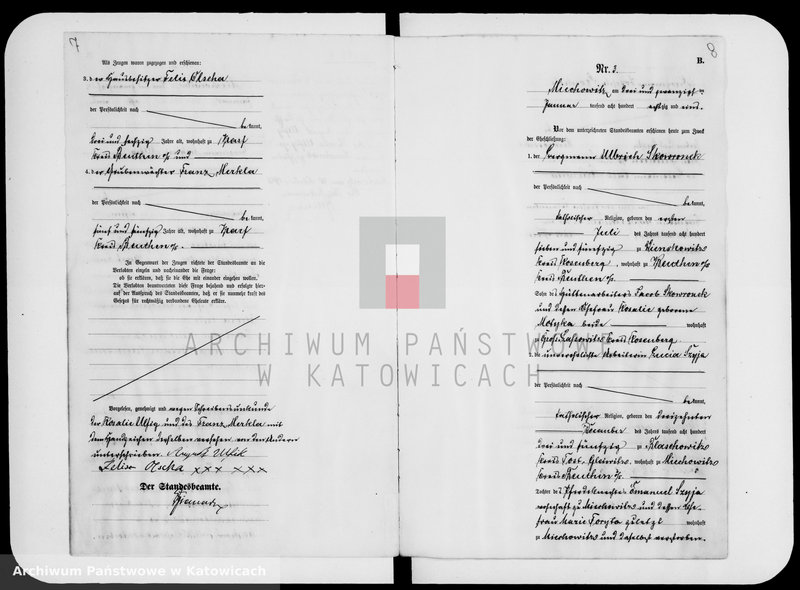 7
Als Zeugen waren zugezogen und erschienen:
3. der Hausbesitzer Felix Olscha
der Persönlichkeit nach
be kannt,
drei und sechzig Jahre alt, wohnhaft zu Karf
Kreis Beuthen O/S und
4. der Grubenwächter Franz Merkla
der Persönlichkeit nach
be kannt,
fünf und fünfzig Jahre alt, wohnhaft zu Karf
Kreis Beuthen O/S.
In Gegenwart der Zeugen richtete der Standesbeamte an die
Verlobten einzeln und nacheinander die Frage:
ob sie erklären, daß sie die Ehe mit einander eingehen wollen.
Die Verlobten beantworteten diese Frage bejahend und erfolgte hier-
auf der Ausspruch des Standesbeamten, daß er sie nunmehr kraft des
Gesetzes für rechtmäßig verbundene Eheleute erkläre.
Vorgelesen, genehmigt und wegen Schreibensunkunde
der Rosalie und des Franz Merkla mit
dem Handzeichen derselben versehen von den Anderen
unterschrieben. August
Felix Olscha xxx xxx
Der Standesbeamte.
8
B.
Nr. 3.
Miechowitz am drei und zwanzigsten
Januar tausend acht hundert achtzig und eins.
Vor dem unterzeichneten Standesbeamten erschienen heute zum Zweck
der Eheschließung:
1. der Bergmann Ulbrich Skowronek
der Persönlichkeit nach
be kannt,
katholischer Religion, geboren den ersten
Juli des Jahres tausend acht hundert
sieben und fünfzig zu
Kreis Rosenberg, wohnhaft zu Beuthen O/S
Kreis Beuthen O/S.
Sohn des Hüttenarbeiters Jacob Skowronek
und dessen Ehefrau Rosalie geborene
beide wohnhaft
zu Groß Lassowitz Kreis Rosenberg
2. die unverehelichte Arbeiterin Lucia Szyja
der Persönlichkeit nach
be kannt,
katholischer Religion, geboren den dreizehnten
November des Jahres tausend acht hundert
drei und fünfzig zu
Kreis Tost-Gleiwitz, wohnhaft zu Miechowitz
Kreis Beuthen O/S.
Tochter des Pferdeknechtes Emanuel Szyja
wohnhaft zu Miechowitz und dessen Ehe-
frau Marie zuletzt wohnhaft
zu Miechowitz und daselbst verstorben.
ARCHIWUM PAŃSTWOWE
W KATOWICACH
Archiwum Państwowe w Katowicach